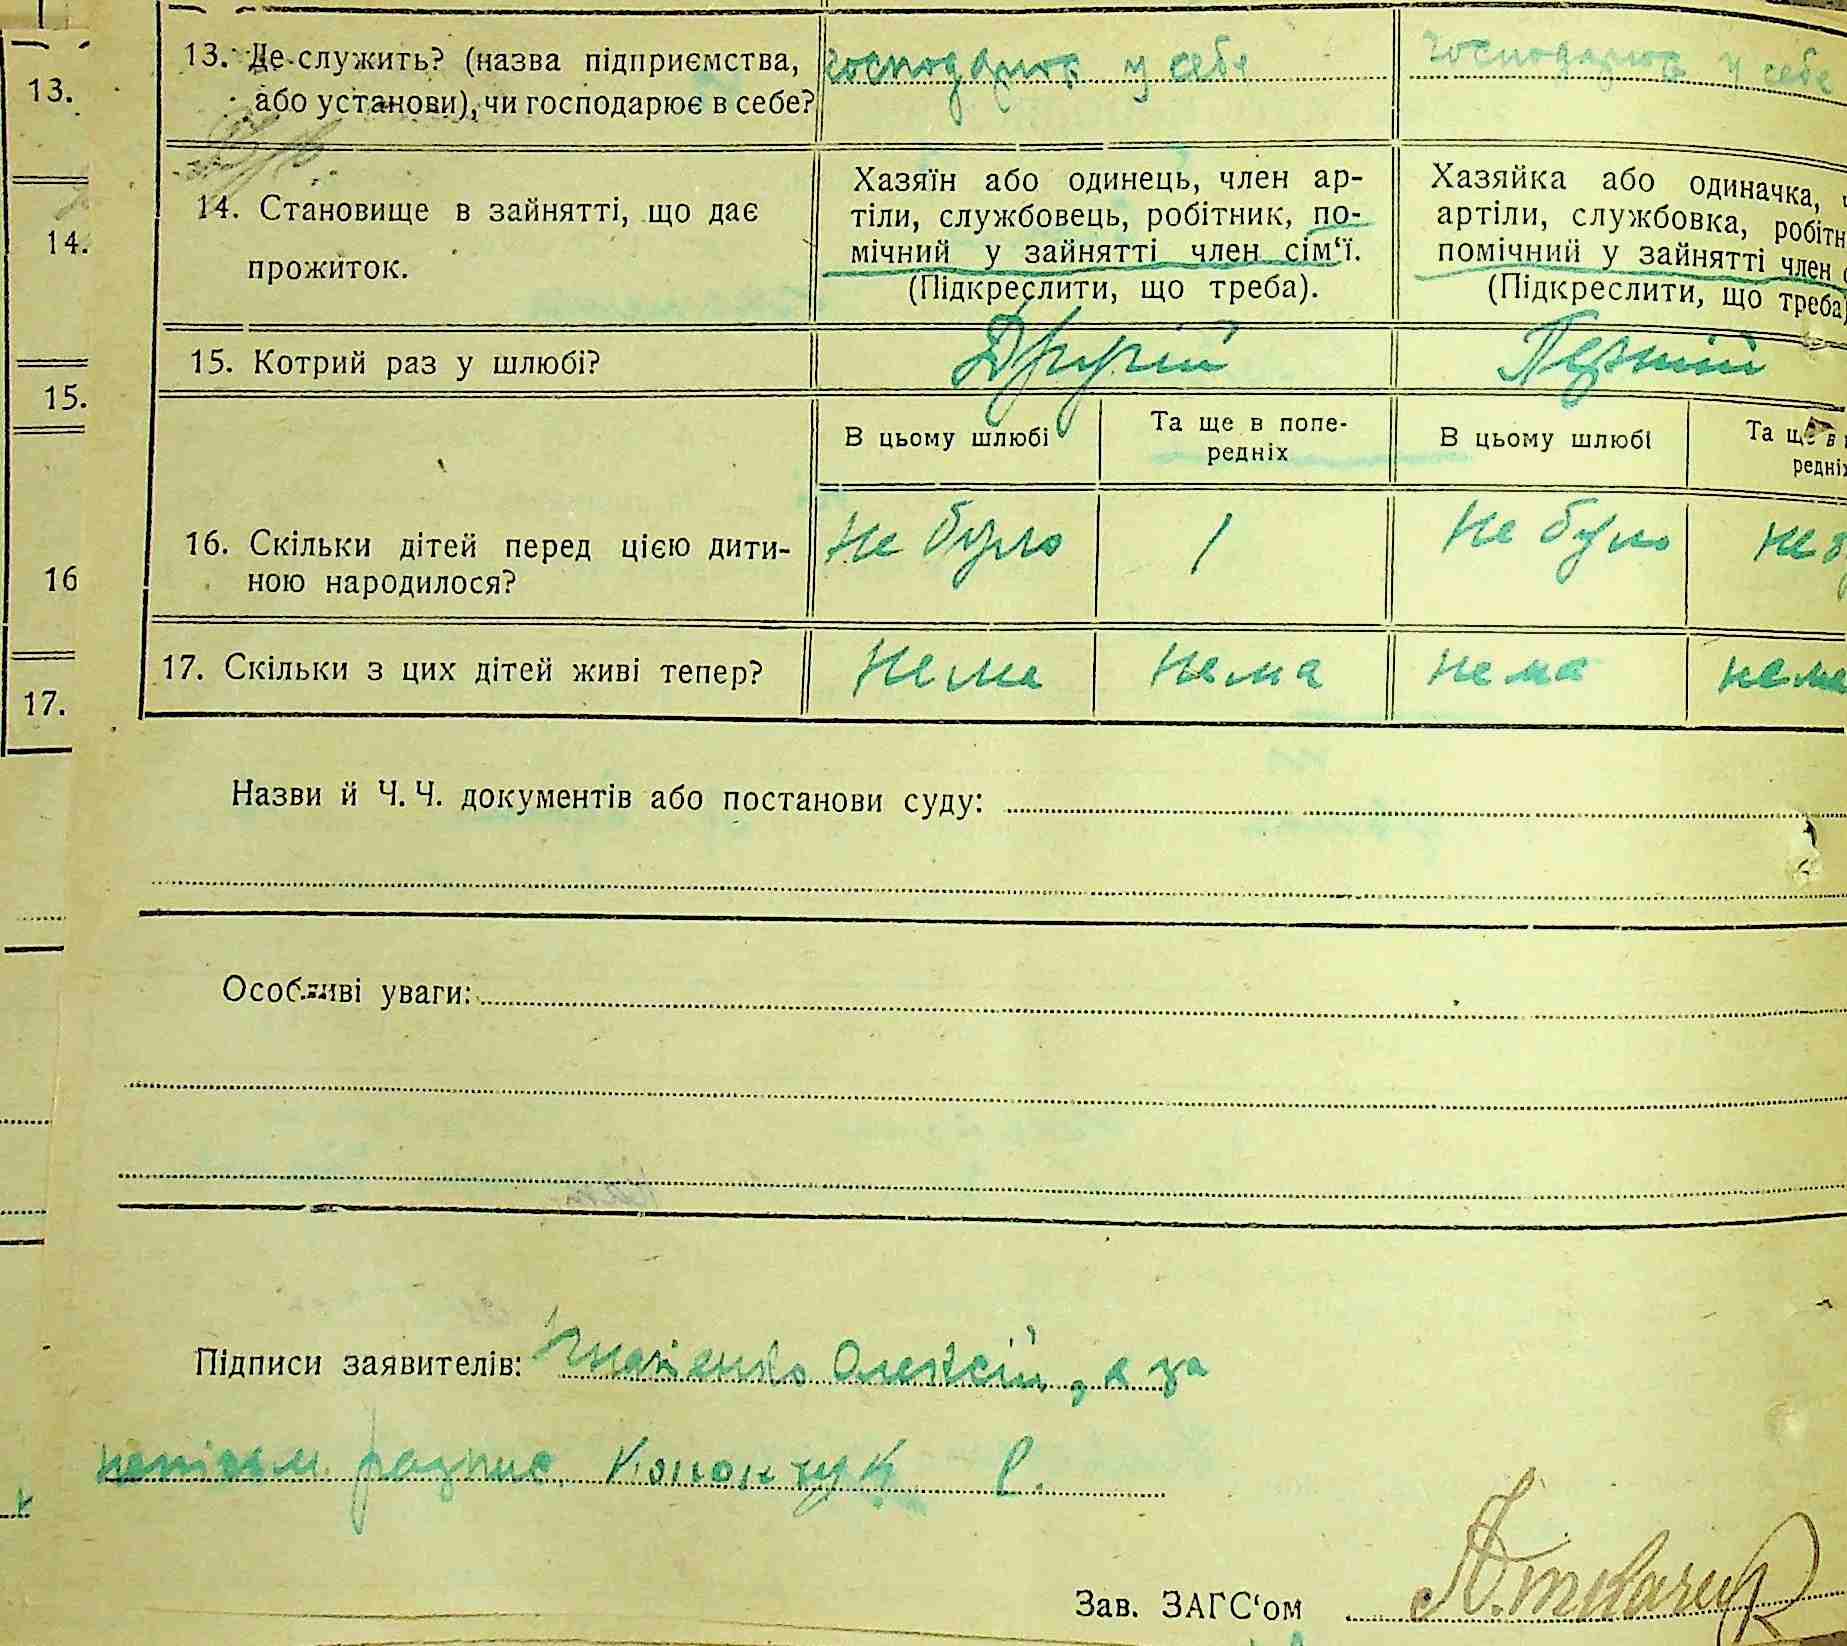 13. Де служить? (назва підприємства, або установи), чи господарює в себе? господарює у себе господарює у себе
13.
14. Становище в зайнятті, що дає прожиток.
14.
Хазяїн або одинець, член ар-
тіли, службовець, робітник, по-
мічний у зайнятті член сім‘ї.
(Підкреслити, що треба).
Хазяйка або одиначка,
артіли, службовка, робітн
помічний у зайнятті член
(Підкреслити, що треба)
15. Котрий раз у шлюбі? Другій Первий
15.
В цьому шлюбі
Та ще в попе-
редніх
В цьому шлюбі
Та ще в
редніх
16. Скільки дітей перед цією дити-
ною народилося?
Не було 1 Не було не
16
17. Скільки з цих дітей живі тепер? нема нема нема нема
17.
Назви й Ч. Ч. документів або постанови суду:
Особливі уваги:
Підписи заявителів: Олексій, а за
розпис. С.
Зав. ЗАГС‘ом